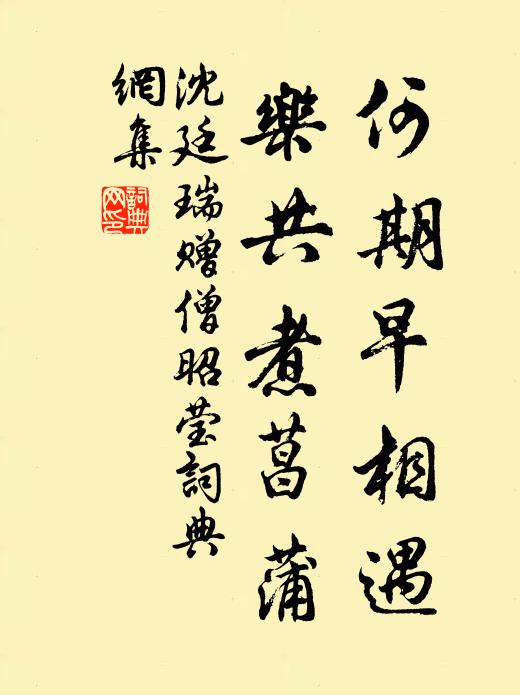 何期早相遇
樂共煮菖蒲
沈廷瑞贈僧昭瑩詞典
網集
詞典
网印